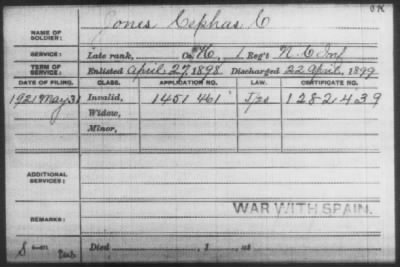 OK
NAME OF SOLDIER: Jones Cephas C
SERVICE: Late rank, Co. H, 1 Reg't N. C. Inf
TERM OF SERVICE: Enlisted April 27, 1898 Discharged 22 April, 1899
DATE OF FILING. CLASS. APPLICATION NO. LAW. CERTIFICATE NO.
1921 May 31 Invalid, 1451 461 1282439
Widow,
Minor,
ADDITIONAL SERVICES:
WAR WITH SPAIN.
REMARKS:
Died , 1 , at